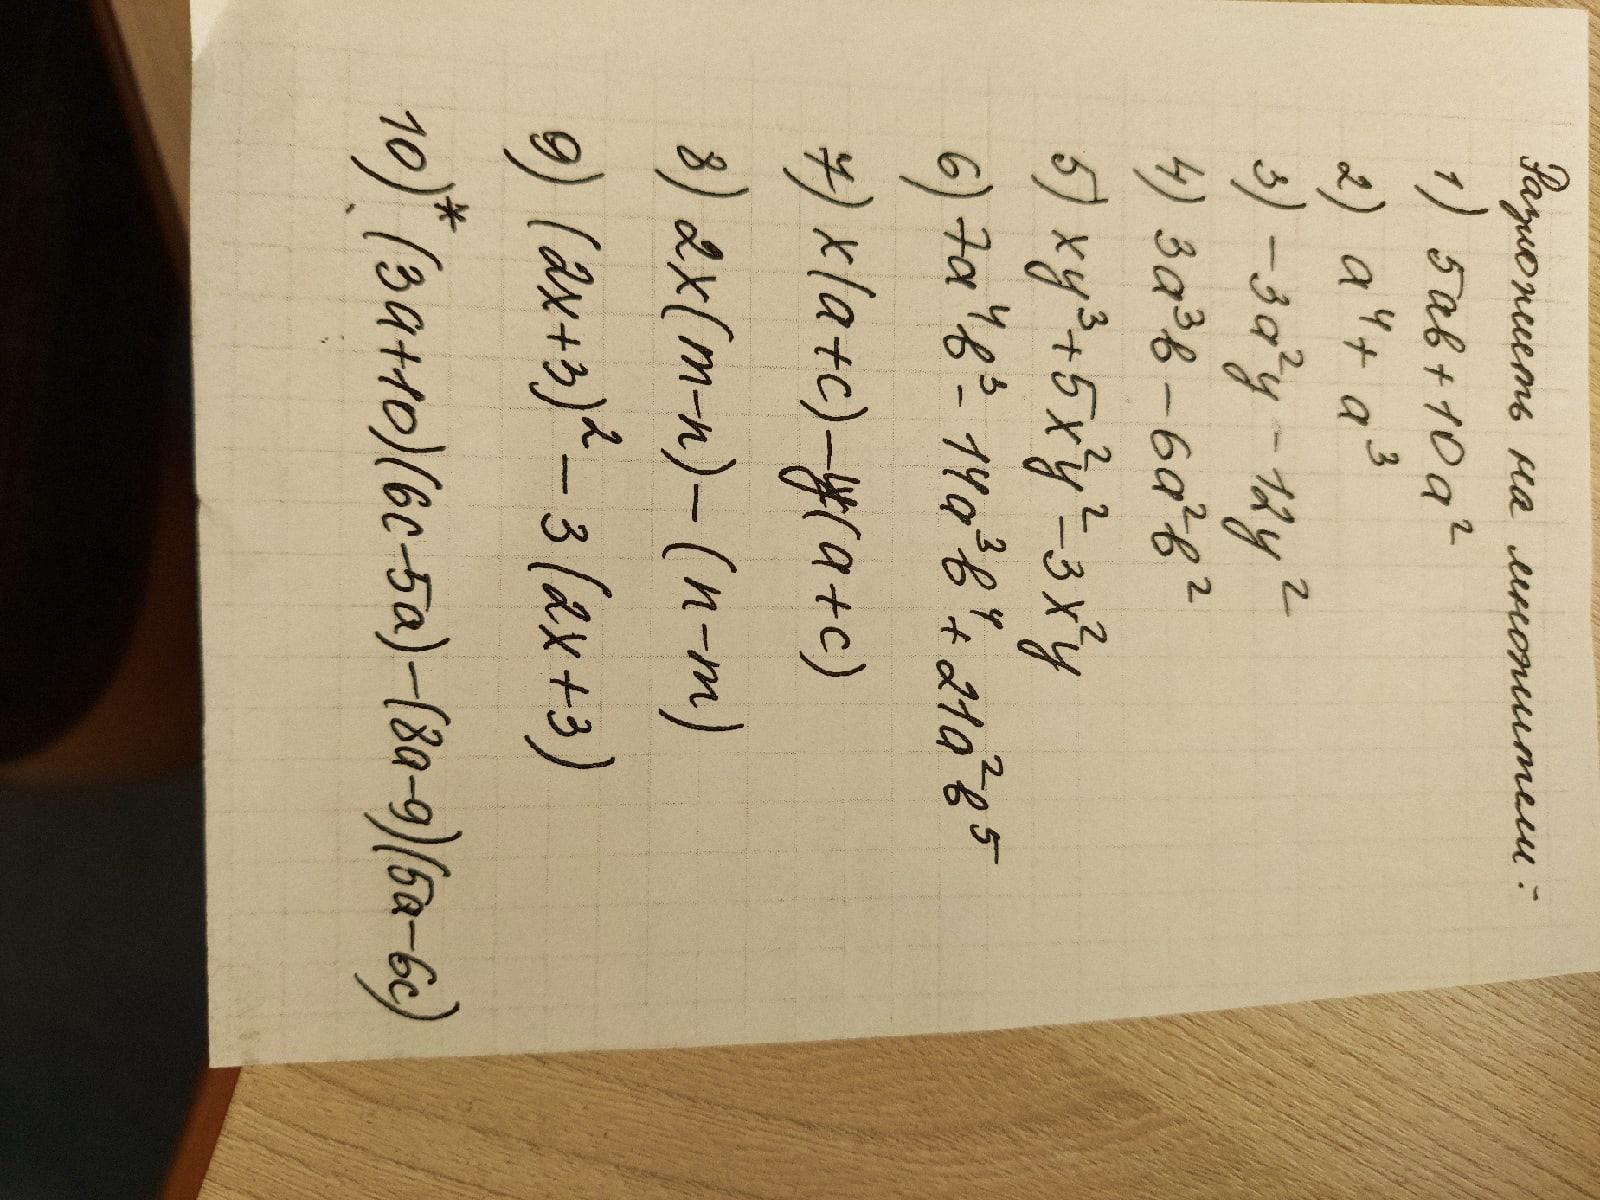 Разложить на множители:
1) 5ab + 10a²
2) a⁴ + a³
3) -3a²y - 12y²
4) 3a³b - 6a²b²
5) xy³ + 5x²y² - 3x²y
6) 7a⁴b³ - 14a³b⁴ + 21a²b⁵
7) x(a+c) - y(a+c)
8) 2x(m-n) - (n-m)
9) (2x+3)² - 3(2x+3)
10)* (3a+10)(6c-5a) - (8a-9)(5a-6c)